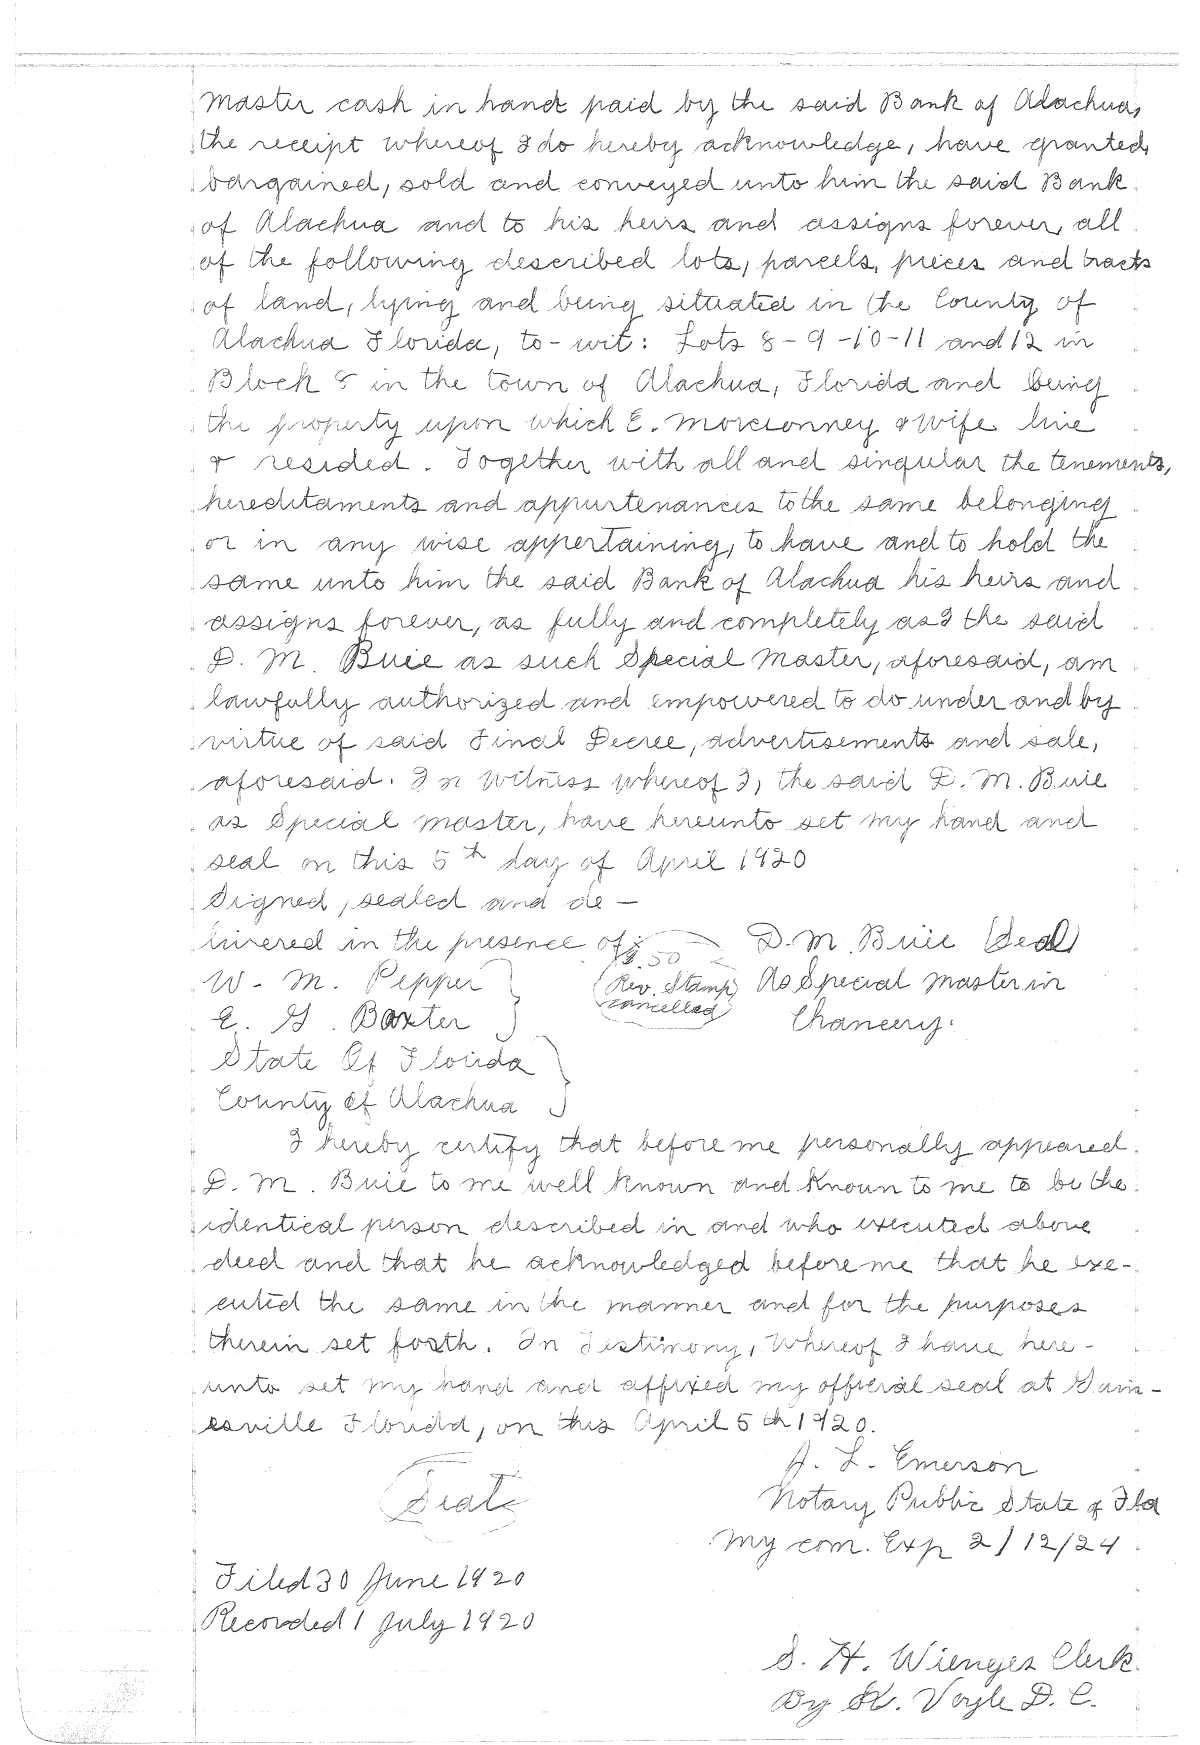 Master cash in hand paid by the said Bank of Alachua,
the receipt whereof I do hereby acknowledge, have granted,
bargained, sold and conveyed unto him the said Bank
of Alachua and to his heirs and assigns forever, all
of the following described lots, parcels, pieces and tracts
of land, lying and being situated in the County of
Alachua Florida, to-wit: Lots 8-9-10-11 and 12 in
Block 8 in the town of Alachua, Florida and being
the property upon which E. & Wife live
& resided. Together with all and singular the tenements,
hereditaments and appurtenances to the same belonging
or in any wise appertaining, to have and to hold the
same unto him the said Bank of Alachua his heirs and
assigns forever, as fully and completely as I the said
D. M. Buie as such Special Master, aforesaid, am
lawfully authorized and empowered to do under and by
virtue of said Final Decree, advertisements and sale,
aforesaid. In Witness whereof I, the said D. M. Buie
as Special Master, have hereunto set my hand and
seal on this 5th day of April 1920
Signed, sealed and de-
livered in the presence of: D. M. Buie (Seal)
W. M. Pepper $.50 Rev. Stamp cancelled As Special Master in
E. G. Baxter Chancery.
State Of Florida
County of Alachua
I hereby certify that before me personally appeared
D. M. Buie to me well known and known to me to be the
identical person described in and who executed above
deed and that he acknowledged before me that he exe-
cuted the same in the manner and for the purposes
therein set forth. In Testimony, Whereof I have here-
unto set my hand and affixed my official seal at Gain-
esville Florida, on this April 5th 1920.
J. L. Emerson
Seal Notary Public State of Fla
My com. Exp 2/12/24
Filed 30 June 1920
Recorded 1 July 1920
S. H. Wienges Clerk
By K. Voyle D. C.